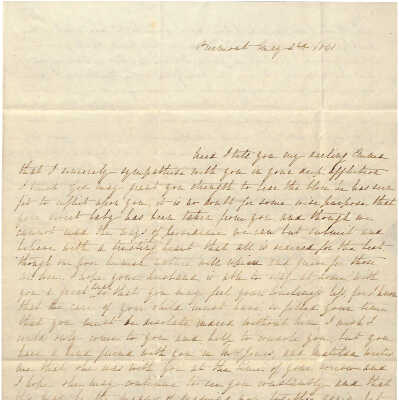 May 2nd 1861
Need I tell you my darling Emma
that I sincerely sympathise with you in your deep affliction
I trust God may grant you strength to bear the blow he has seen
fit to inflict upon you, it is no doubt for some wise purpose, that
your sweet baby has been taken from you and though we
cannot read the ways of providence we can but submit and
believe with a trusting heart that all is ordered for the best
though our poor human nature will and grieve for those
we love. I hope your husband is able to stay at home with
you a great that you may feel your loneliness less, for I know
that the care of your child must have so filled your time
that you must be desolate indeed without him I wish I
could only come to you and help to console you, but you
have a kind friend with you in and writes
me that she was with you at the time of your sorrow and
I hope she may continue to see you constantly and that